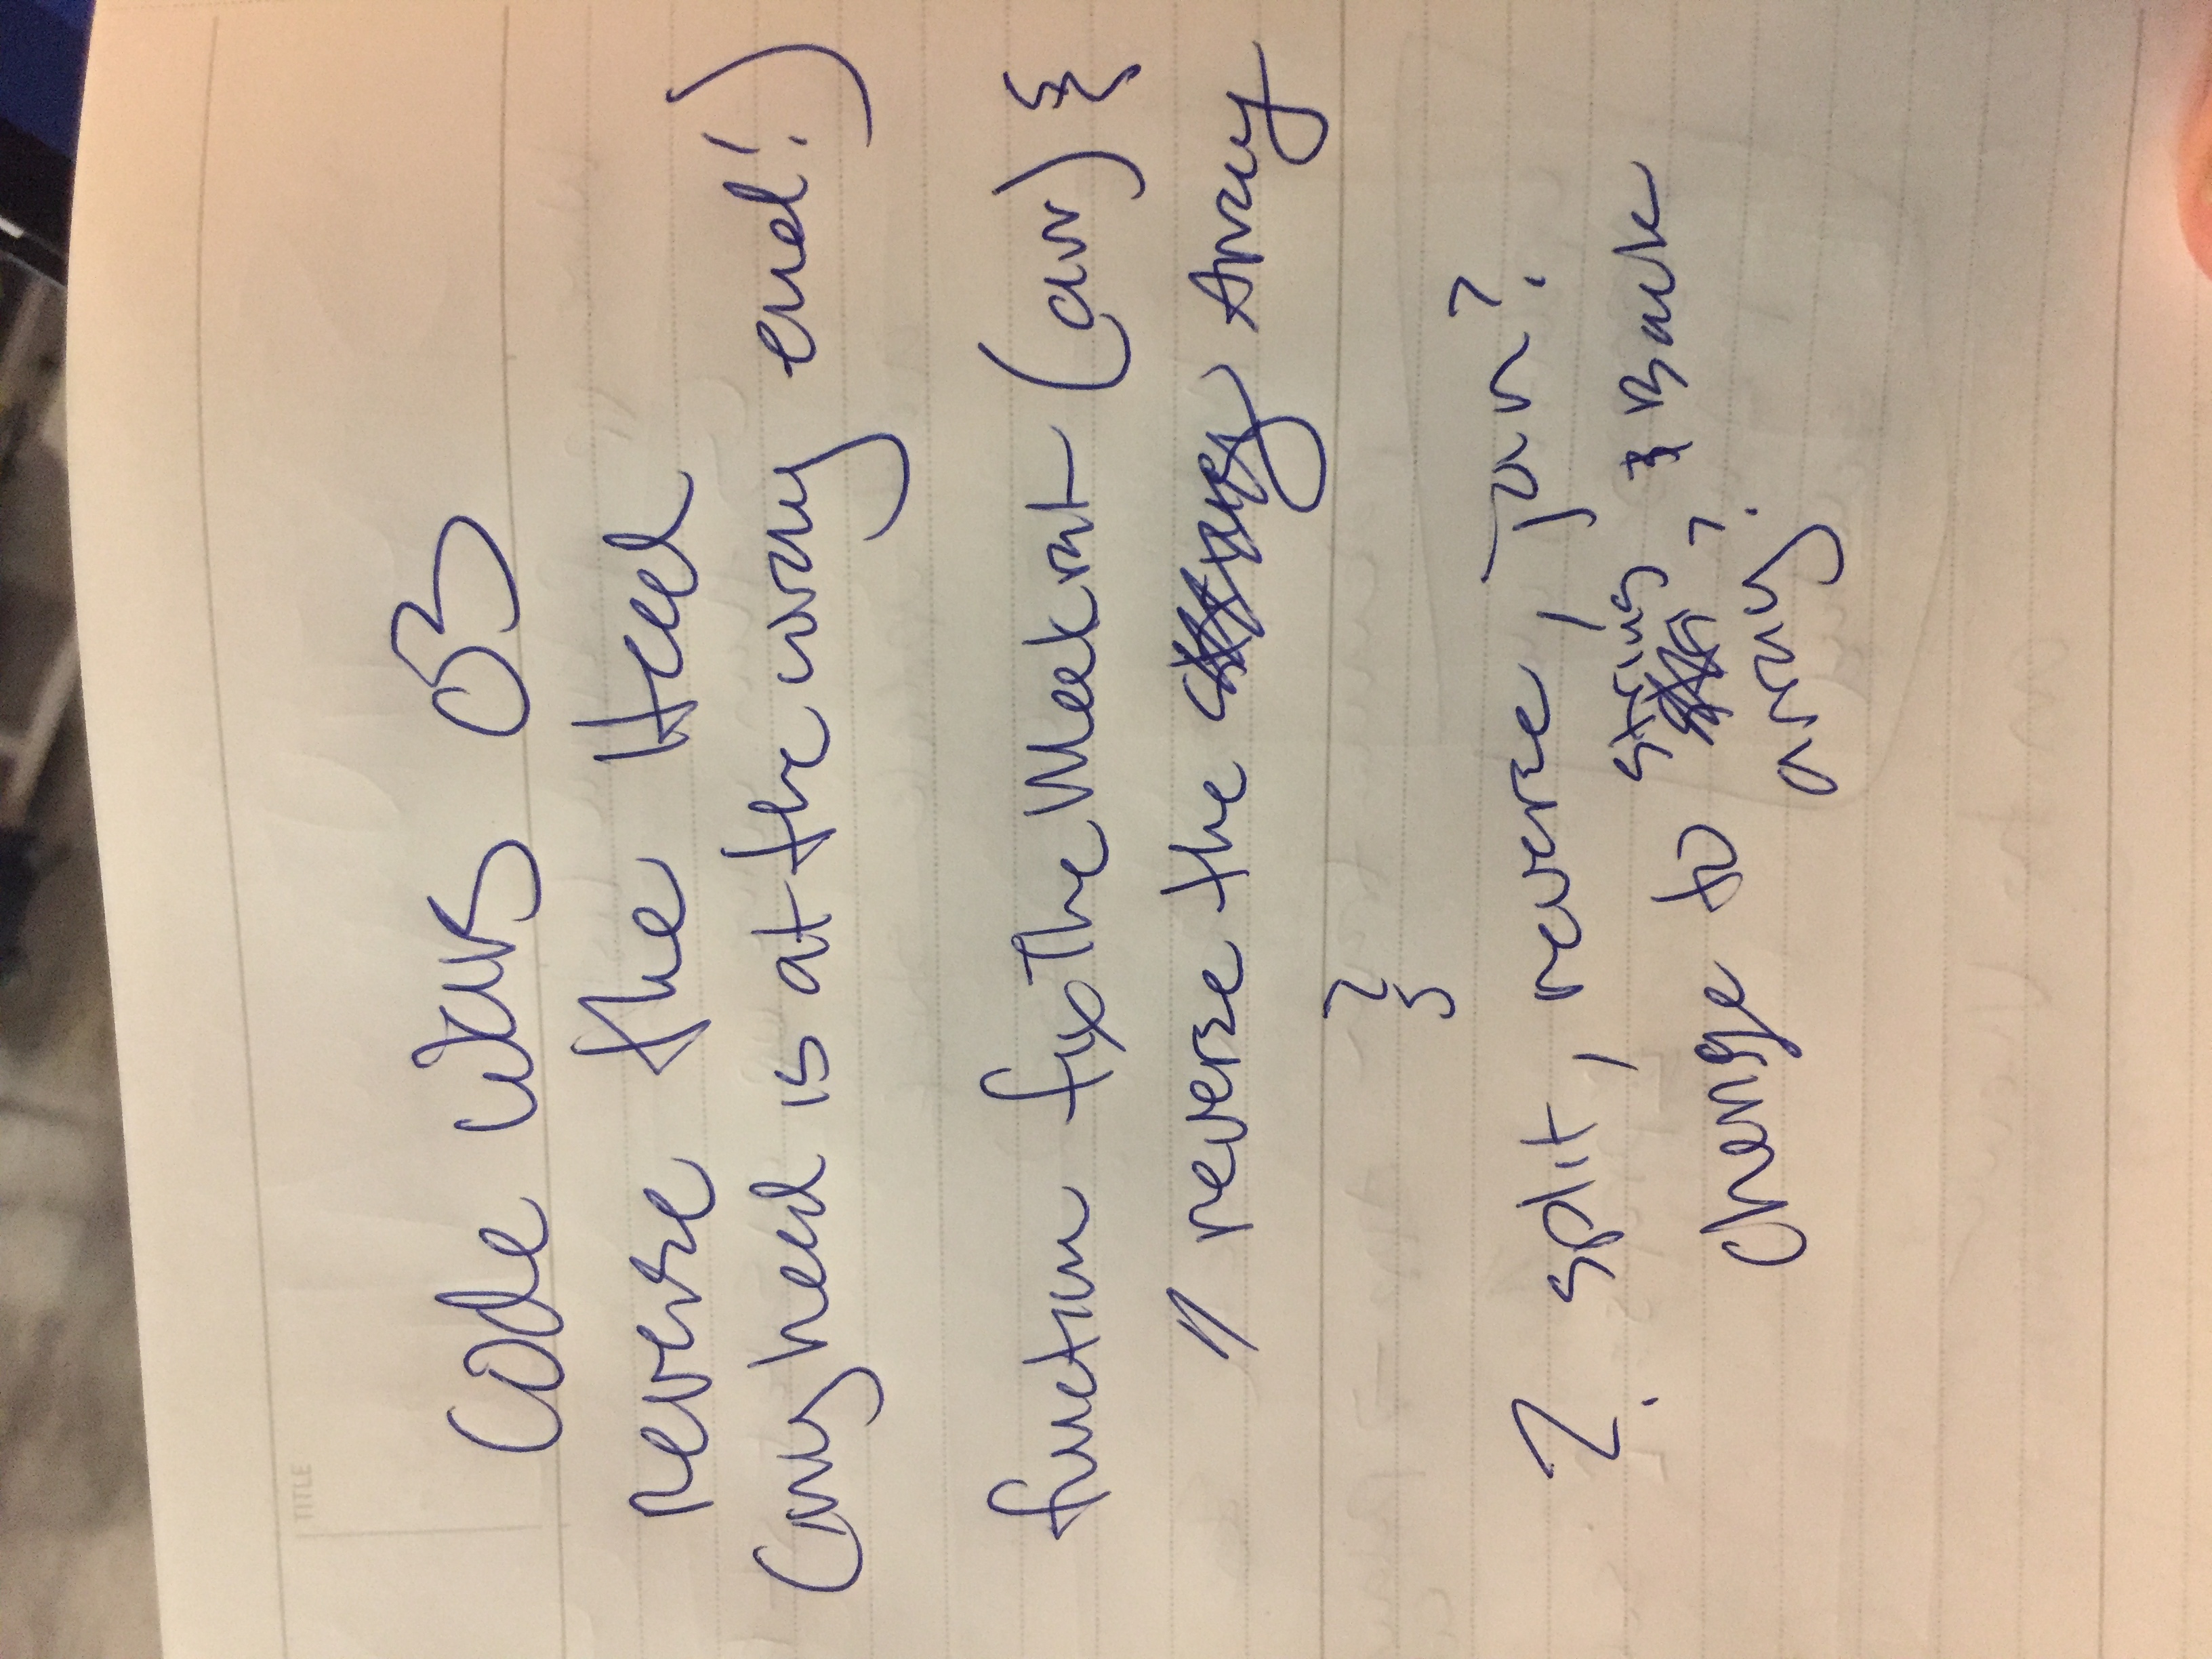 TITLE
Code Wars 03
reverse the Head
(my head is at the wrong end!)
function fixTheMeekrat (arr) {
// reverse the Array
}
? split, reverse, join?
change to string & Back
array?